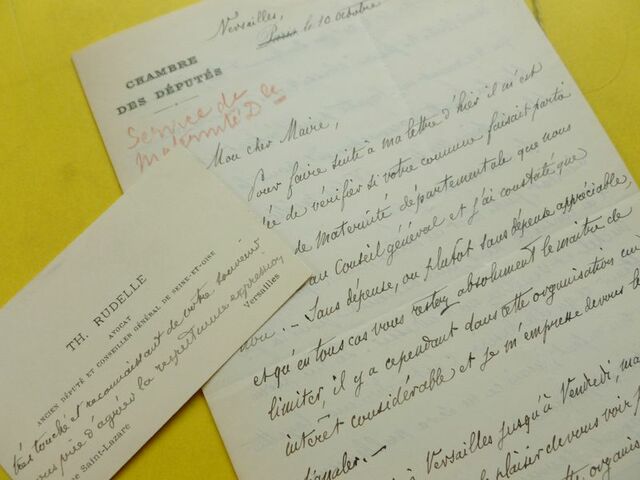 Versailles,
Paris le 10 Octobre
CHAMBRE
DES DÉPUTÉS
Service de
Maternité Dle
Mon cher Maire,
Pour faire suite à ma lettre d'hier il m'est
de vérifier si votre commune faisait partie
de maternité départementale que nous
au Conseil général et j'ai constaté que
non. — Sans dépense, ou plutôt sans dépense appréciable,
et qu'en tous cas vous restez absolument le maître de
limiter, il y a cependant dans cette organisation un
intérêt considérable et je m'empresse de vous le
signaler. —
à Versailles jusqu'à Vendredi, mais
plaisir de vous voir
organis
TH. RUDELLE
AVOCAT
ANCIEN DÉPUTÉ ET CONSEILLER GÉNÉRAL DE SEINE-ET-OISE
très touché et reconnaissant de votre souvenir
vous prie d'agréer la respectueuse expression
Versailles
Saint-Lazare